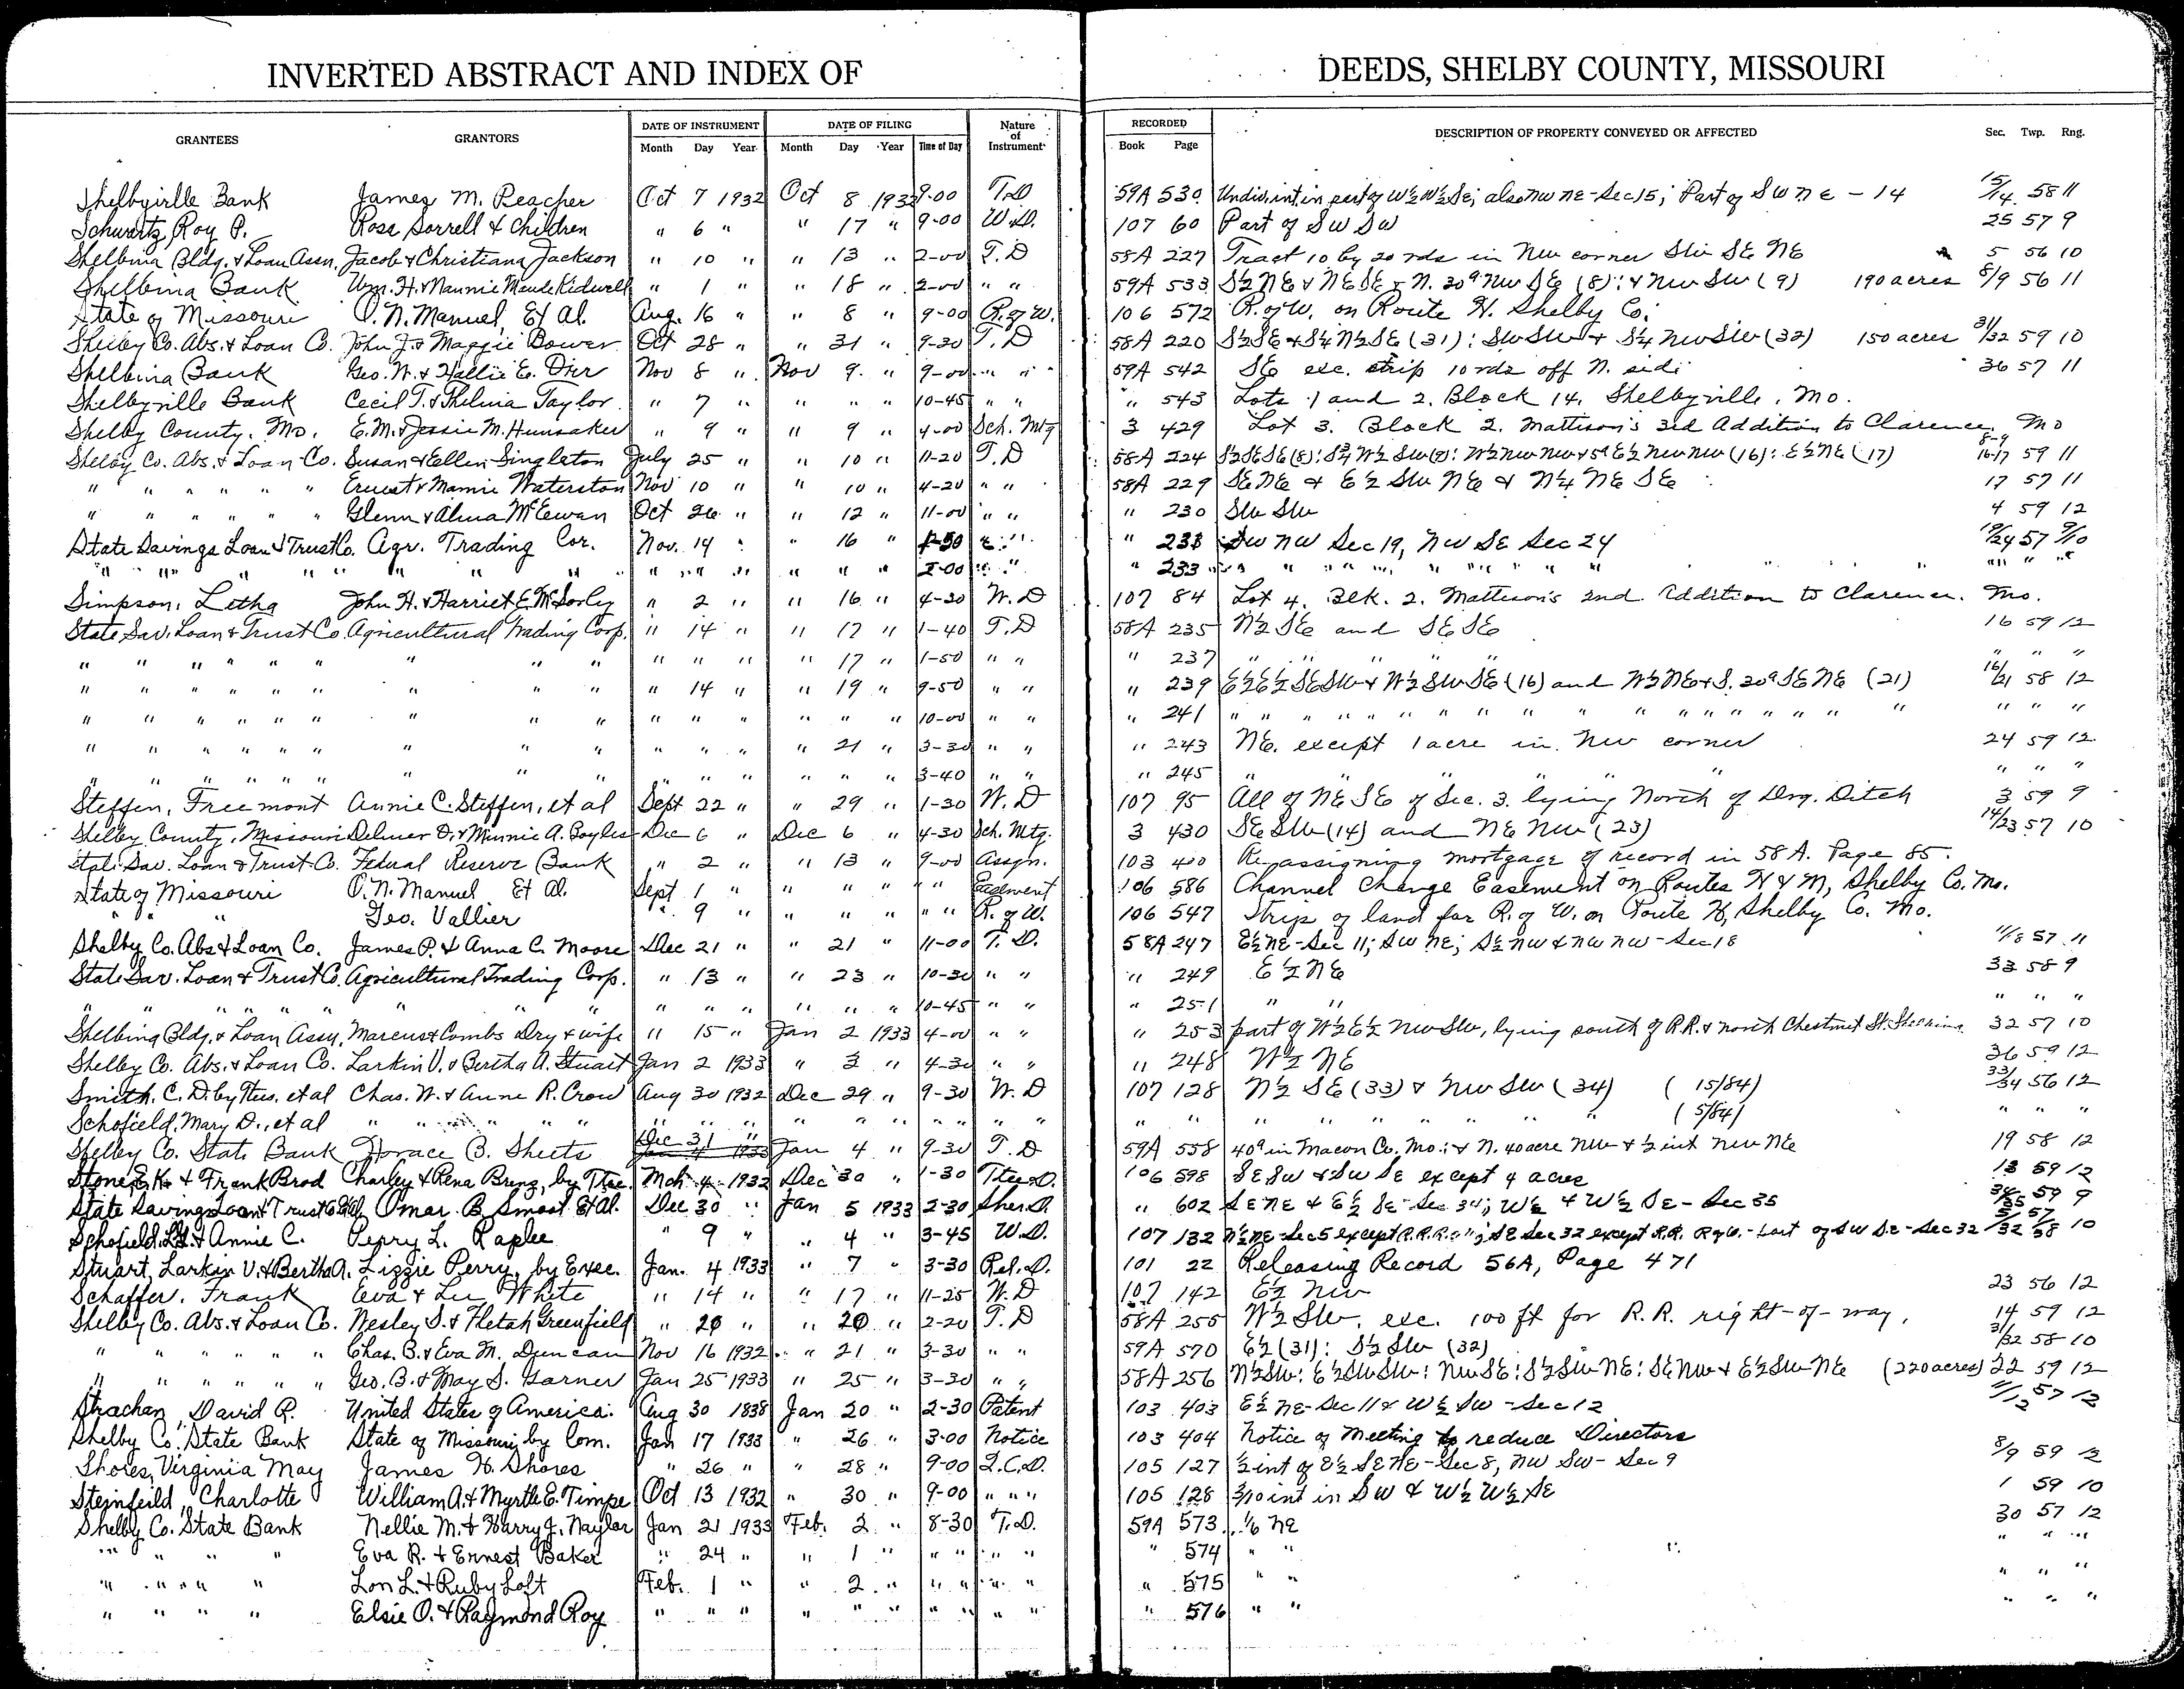 INVERTED ABSTRACT AND INDEX OF DEEDS, SHELBY COUNTY, MISSOURI
GRANTEES GRANTORS DATE OF INSTRUMENT DATE OF FILING Nature of Instrument RECORDED DESCRIPTION OF PROPERTY CONVEYED OR AFFECTED Sec. Twp. Rng.
Month Day Year Month Day Year Time of Day Book Page
Shelbyville Bank James M. Peacher Oct 7 1932 Oct 8 1932 9-00 T.D 59A 530 Undiv. int. in part of W½ W½ SE; also NW NE - Sec 15; Part of SW NE - 14 15/14 58 11
Schwartz, Roy P. Rosa Sorrell & Children " 6 " " 17 " 9-00 W.D. 107 60 Part of SW SW 25 57 9
Shelbina Bldg. & Loan Assn. Jacob & Christiana Jackson " 10 " " 13 " 2-00 T.D 58A 227 Tract 10 by 20 rds in NW corner SW SE NE 5 56 10
Shelbina Bank Wm. H. & Mannie Maude Kidwell " 1 " " 18 " 2-00 " " 59A 533 S½ NE & NE SE & N. 30ᵃ NW SE (8): & NW SW (9) 190 acres 8/9 56 11
State of Missouri O. N. Manuel, Et Al. Aug. 16 " " 8 " 9-00 R. of W. 106 572 R. of W. on Route H. Shelby Co.
Shelby Co. Abs. & Loan Co. John J. & Maggie Bower Oct 28 " " 31 " 9-30 T.D 58A 220 S½ SE & S¼ N½ SE (31): SW SW & S¼ NW SW (32) 150 acres 31/32 59 10
Shelbina Bank Geo. W. & Hallie E. Drer Nov 8 " Nov 9 " 9-00 " " 59A 542 SE exc. strip 10 rds off N. side 36 57 11
Shelbyville Bank Cecil T. & Thelma Taylor " 7 " " " " 10-45 " " " 543 Lots 1 and 2. Block 14, Shelbyville, Mo.
Shelby County, Mo. E. M. & Jessie M. Hunsaker " 9 " " 9 " 4-00 Sch. Mtg 3 429 Lot 3. Block 2. Mattison's 3rd Addition to Clarence, Mo
Shelby Co. Abs. & Loan Co. Susan & Ellen Singleton July 25 " " 10 " 11-20 T.D 58A 224 S½ SE SE (8): S¾ W½ SW (9): W½ NW NW & 5ᵃ E½ NW NW (16): E½ NE (17) 8-9 16-17 59 11
" " " " " " Ernest & Mamie Waterston Nov 10 " " 10 " 4-20 " " 58A 229 SE NE & E½ SW NE & N¼ NE SE 17 57 11
" " " " " " Glenn & Alma McEwan Oct 26 " " 12 " 11-00 " " " 230 SW SW 4 59 12
State Savings Loan & Trust Co. Agr. Trading Cor. Nov. 14 " " 16 " 1-50 " " " 231 SW NW Sec 19, NW SE Sec 24 19/24 57 9/10
" " " " " " " " " " " " " 2-00 " " " 233 " " " " " " " " " " "
Simpson, Letha John H. & Harriet E. McSorley " 2 " " 16 " 4-30 W.D 107 84 Lot 4. Blk. 2. Mattison's 2nd Addition to Clarence. Mo.
State Sav. Loan & Trust Co. Agricultural Trading Corp. " 14 " " 17 " 1-40 T.D 58A 235 N½ SE and SE SE 16 59 12
" " " " " " " " " " " " " 17 " 1-50 " " " 237 " " " " " " " "
" " " " " " " " " " 14 " " 19 " 9-50 " " " 239 E½ E½ SE SW & W½ SW SE (16) and W½ NE & S. 30ᵃ SE NE (21) 16/21 58 12
" " " " " " " " " " " " " " " 10-00 " " " 241 " " " " " " " " " " " " " " " "
" " " " " " " " " " " " " 21 " 3-30 " " " 243 NE. except 1 acre in NW corner 24 59 12
" " " " " " " " " " " " " " " 3-40 " " " 245 " " " " " "
Steffen, Freemont Annie C. Steffen, et al Sept 22 " " 29 " 1-30 W.D 107 95 All of NE SE of Sec. 3. lying North of Drg. Ditch 3 59 9
Shelby County, Missouri Delmer D. & Minnie A. Boyles Dec 6 " Dec 6 " 4-30 Sch. Mtg. 3 430 SE SW (14) and NE NW (23) 14/23 57 10
State Sav. Loan & Trust Co. Federal Reserve Bank " 2 " " 13 " 9-00 Assgn. 103 400 Re-assigning mortgage of record in 58A. Page 85.
State of Missouri O. N. Manuel Et Al. Sept 1 " " " " " " Easement 106 586 Channel Change Easement on Routes H & M, Shelby Co. Mo.
" " " Geo. Vallier " 9 " " " " " " R. of W. 106 547 Strip of land for R. of W. on Route H, Shelby Co. Mo.
Shelby Co. Abs & Loan Co. James P. & Anna C. Moore Dec 21 " " 21 " 11-00 T.D. 58A 247 E½ NE - Sec 11; SW NE; S½ NW & NW NW - Sec 18 11/18 57 11
State Sav. Loan & Trust Co. Agricultural Trading Corp. " 13 " " 23 " 10-30 " " " 249 E½ NE 33 58 9
" " " " " " " " " " " " " " " 10-45 " " " 251 " " " " "
Shelbina Bldg. & Loan Assn. Marcus & Combs Dry & wife " 15 " Jan 2 1933 4-00 " " " 253 part of W½ E½ NW SW, lying south of R.R. & north Chestnut St. Shelbina 32 57 10
Shelby Co. Abs. & Loan Co. Larkin V. & Bertha A. Stuart Jan 2 1933 " 3 " 4-30 " " " 248 W½ NE 36 59 12
Smith, C. D. by Trus. et al Chas. W. & Anne R. Crow Aug 30 1932 Dec 29 " 9-30 W.D 107 128 N½ SE (33) & NW SW (34) (15/84) 33/34 56 12
Schofield, Mary D., et al " " " " " " " " " " " " " " " " " " " (5/84) " " "
Shelby Co. State Bank Horace B. Sheets Dec 31 " Jan 4 " 9-30 T.D 59A 558 40ᵃ in Macon Co. Mo.: & N. 40 acre NW & ½ int NW NE 19 58 12
Stone, E. K. & Frank Brod Charley & Rena Bruns, by Tree. Mch 4 1932 Dec 30 " 1-30 Tte. D. 106 598 SE SW & SW SE except 4 acres 13 59 12
State Savings Loan & Trust Co. Et Al Omar B. Smoot Et Al. Dec 30 " Jan 5 1933 2-30 Sher. D. " 602 SE NE & E½ SE - Sec 34; W½ & W½ SE - Sec 35 34/35 59 9
Schofield, & Annie C. Perry L. Raplee " 9 " " 4 " 3-45 W.D. 107 132 N½ NE - Sec 5 except R.R. SE Sec 32 except R.R. R of W. - Last of SW SE - Sec 32 5/32 57/58 10
Stuart, Larkin V. & Bertha A. Lizzie Perry, by Exec. Jan. 4 1933 " 7 " 3-30 Rel. D. 101 22 Releasing Record 56A, Page 471
Schaffer, Frank Eva & Lee White " 14 " " 17 " 11-25 W.D 107 142 E½ NW 23 56 12
Shelby Co. Abs. & Loan Co. Wesley S. & Fletah Greenfield " 20 " " 20 " 2-20 T.D 58A 255 W½ SW, exc. 100 ft for R.R. right-of-way, 14 59 12
" " " " " " Chas. B. & Eva M. Duncan Nov 16 1932 " 21 " 3-30 " " 59A 570 E½ (31): S½ SW (32) 31/32 58 10
" " " " " " Geo. B. & May S. Garner Jan 25 1933 " 25 " 3-30 " " 58A 256 N½ SW: E½ SW SW: NW SE: S½ SW NE: SE NW & E½ SW NE (220 acres) 22 59 12
Strachan, David R. United States of America. Aug 30 1838 Jan 20 " 2-30 Patent 103 403 E½ NE - Sec 11 & W½ SW - Sec 12 11/12 57 12
Shelby Co. State Bank State of Missouri by Com. Jan 17 1933 " 26 " 3-00 Notice 103 404 Notice of Meeting to reduce Directors
Shores, Virginia May James H. Shores " 26 " " 28 " 9-00 Q.C.D. 105 127 ½ int of E½ SE NE - Sec 8, NW SW - Sec 9 8/9 59 12
Steinfeild, Charlotte William A. & Myrtle E. Timpe Oct 13 1932 " 30 " 9-00 " " " 105 128 3/10 int in SW & W½ W½ SE 1 59 10
Shelby Co. State Bank Nellie M. & Harry J. Naylor Jan 21 1933 Feb. 2 " 8-30 T.D. 59A 573 1/6 NE 30 57 12
" " " " Eva R. & Ernest Baker " 24 " " 1 " " " " " " 574 " " " " "
" " " " Lon L. & Ruby Loft Feb. 1 " " 2 " " " " " " 575 " " " " "
" " " " Elsie O. & Raymond Roy " " " " " " " " " " " 576 " " " " "